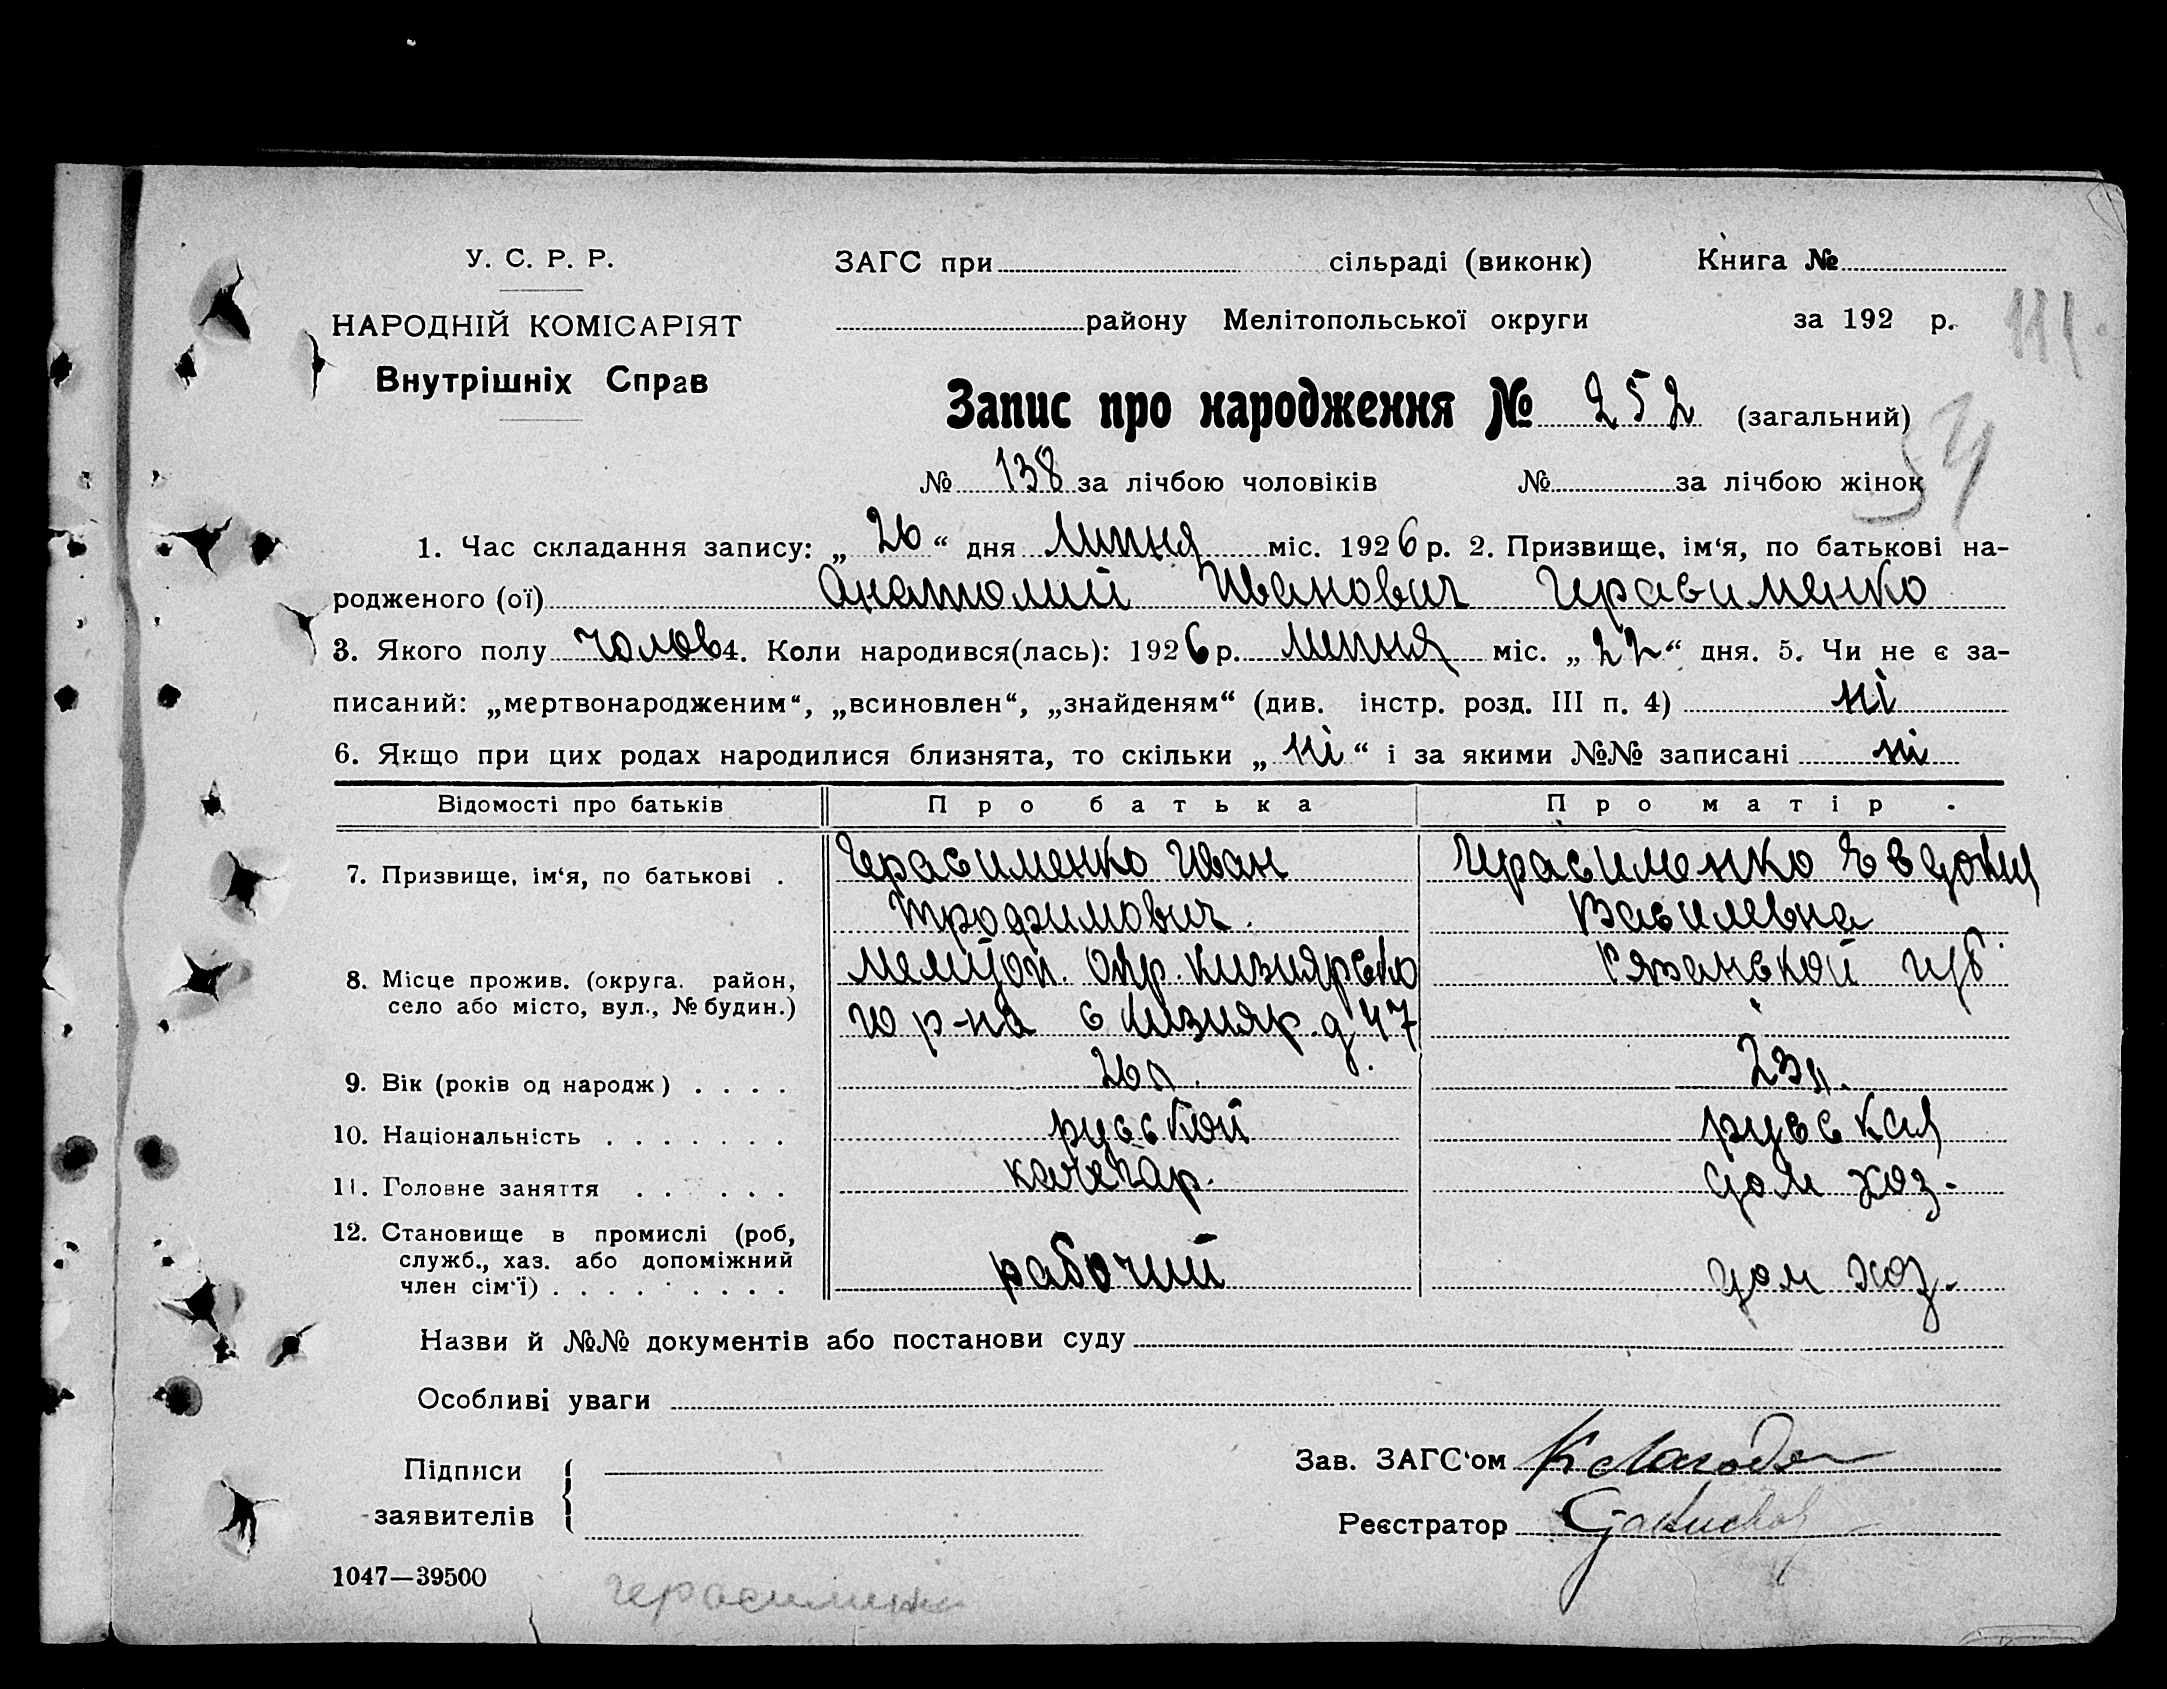 У. С. Р. Р.
НАРОДНІЙ КОМІСАРІЯТ
Внутрішніх Справ
ЗАГС при сільраді (виконк) Книга №
району Мелітопольської округи за 192 р.
111.
Запис про народження № 252 (загальний)
54
№ 138 за лічбою чоловіків № за лічбою жінок
1. Час складання запису: „26“ дня Липня міс. 1926 р. 2. Призвище, ім‘я, по батькові на-
родженого (ої) Анатолий Иванович Герасименко
3. Якого полу чолов 4. Коли народився(лась): 1926 р. липня міс. „22“ дня. 5. Чи не є за-
писаний: „мертвонародженим“, „всиновлен“, „знайденям“ (див. інстр. розд. III п. 4) ні
6. Якщо при цих родах народилися близнята, то скільки „ні“ і за якими №№ записані ні
Відомості про батьків Про батька Про матір
7. Призвище, ім‘я, по батькові . Герасименко Иван Герасименко Евдокия
Трофимович. Василевна
8. Місце прожив. (округа, район, Окр. Кизиярско Рязанской губ.
село або місто, вул., № будин.) го р-на с Кизияр. д 47
9. Вік (років од народж) . . . . 26 л. 23 л.
10. Національність . . . . . . . русский русская
11. Головне заняття . . . . . . кочегар. дом хоз.
12. Становище в промислі (роб,
служб., хаз. або допоміжний
член сім‘ї) . . . . . . . . . рабочий дом хоз.
Назви й №№ документів або постанови суду
Особливі уваги
Підписи
заявителів
Зав. ЗАГС‘ом
Реєстратор
1047—39500
Герасименко